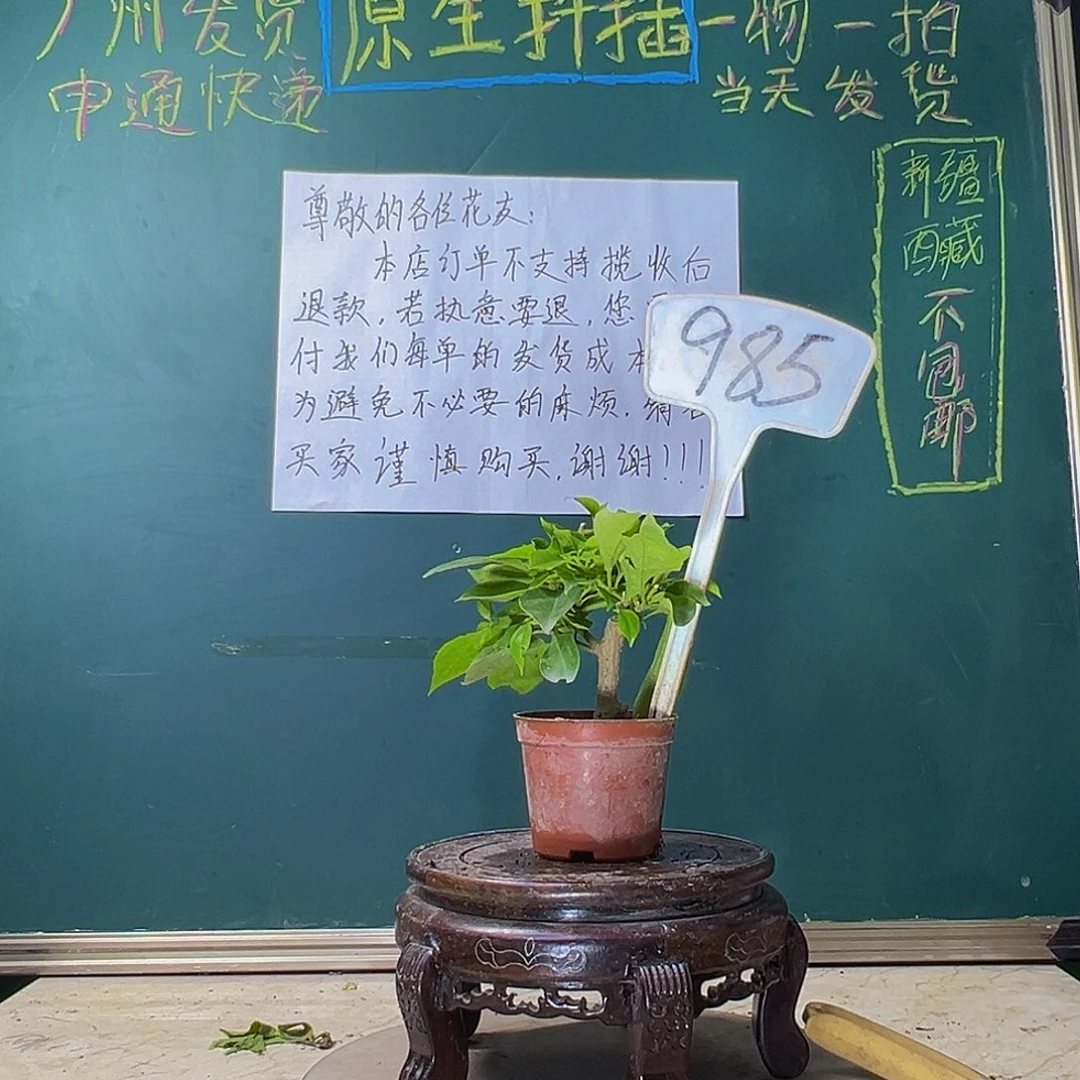 广州发货
原生扦插
一物一拍
申通快递
当天发货
新疆
西藏
不包邮
尊敬的各位花友：
本店订单不支持揽收后
退款，若执意要退，您
付我们每单的发货成本
为避免不必要的麻烦，
买家谨慎购买，谢谢!!!
985